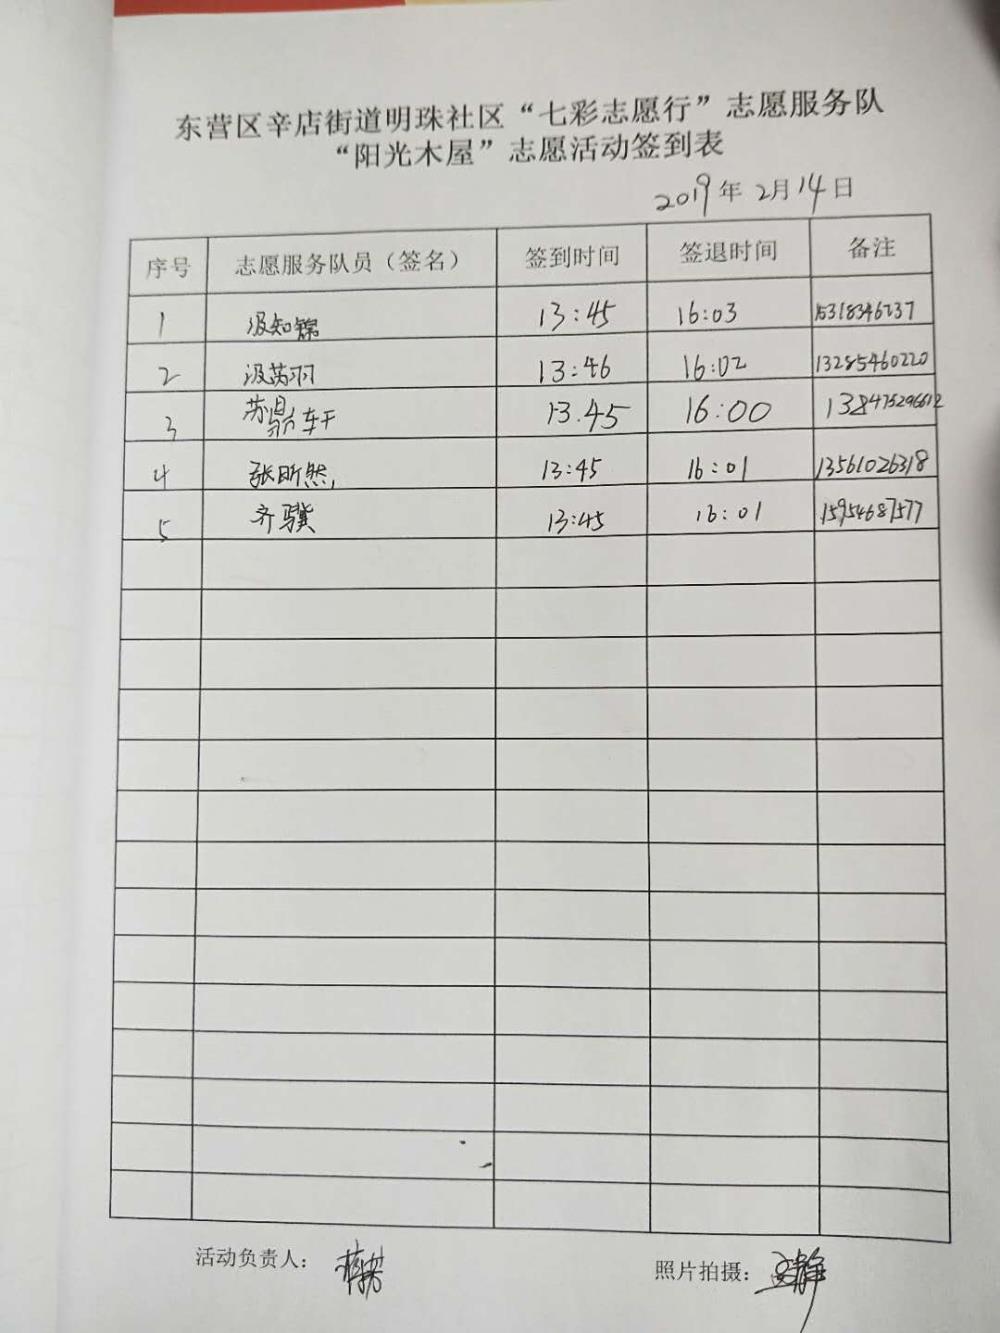 东营区辛店街道明珠社区“七彩志愿行”志愿服务队
“阳光木屋”志愿活动签到表
2019年 2月14日
序号 志愿服务队员（签名） 签到时间 签退时间 备注
1 汲知锦 13:45 16:03 15318346237
2 汲芮羽 13:46 16:02 13285460220
3 苏鼎轩 13.45 16:00 138475296612
4 张昕然, 13:45 16:01 13561026318
5 齐骥 13:45 16:01 15954687577
活动负责人：
照片拍摄：